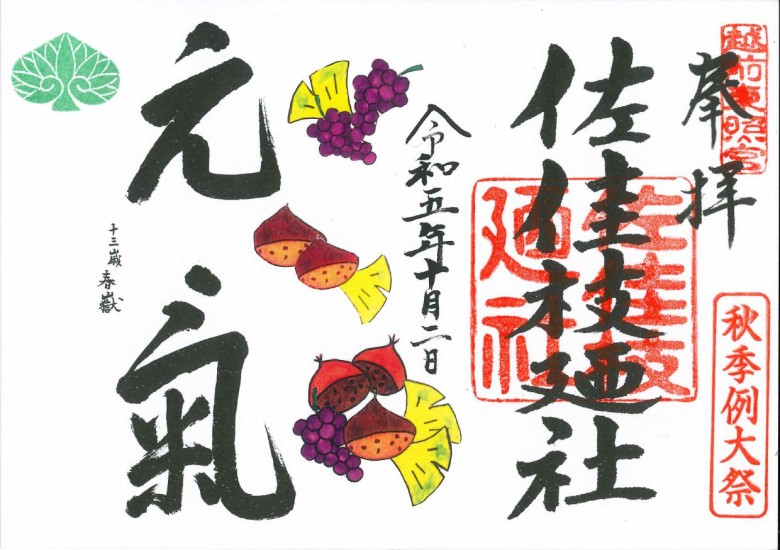 越前東照宮
奉拝
秋季例大祭
佐佳枝廼社
佐佳枝
廼社
令和五年十月二日
元氣
十三歳 春嶽